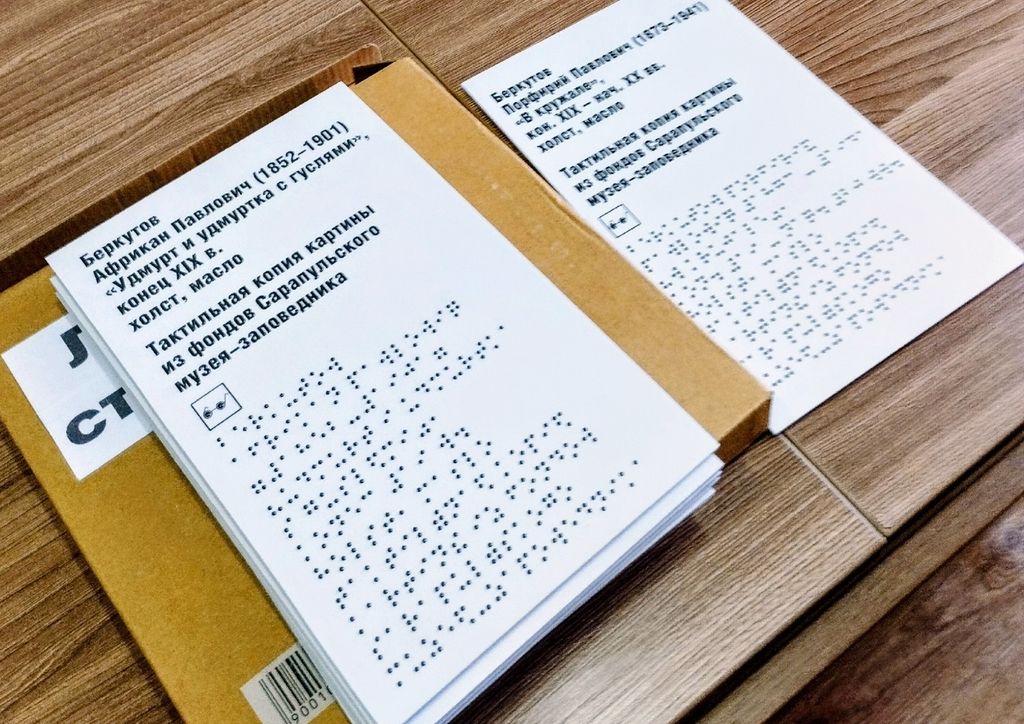 Беркутов
Африкан Павлович (1852-1901)
«Удмурт и удмуртка с гуслями»,
конец XIX в.
холст, масло
Тактильная копия картины
из фондов Сарапульского
музея–заповедника
Беркутов
Порфирий Павлович (1873-1941)
«В кружале»,
кон. XIX – нач. XX вв.
холст, масло
Тактильная копия картины
из фондов Сарапульского
музея–заповедника
Л
ст